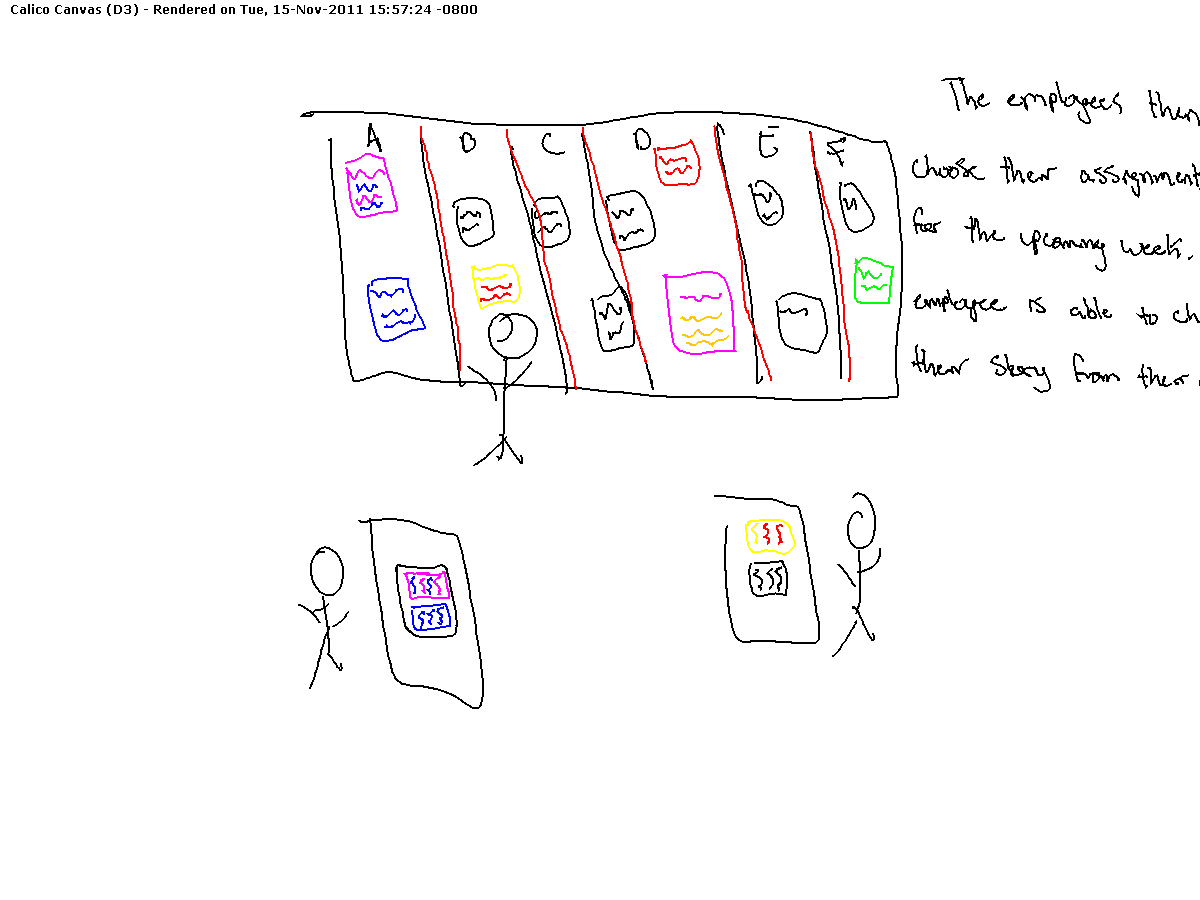 Calico Canvas (D3) - Rendered on Tue, 15-Nov-2011 15:57:24 -0800
A B C D E F
The employees then
choose their assignment
for the upcoming week.
employee is able to ch
their story from their